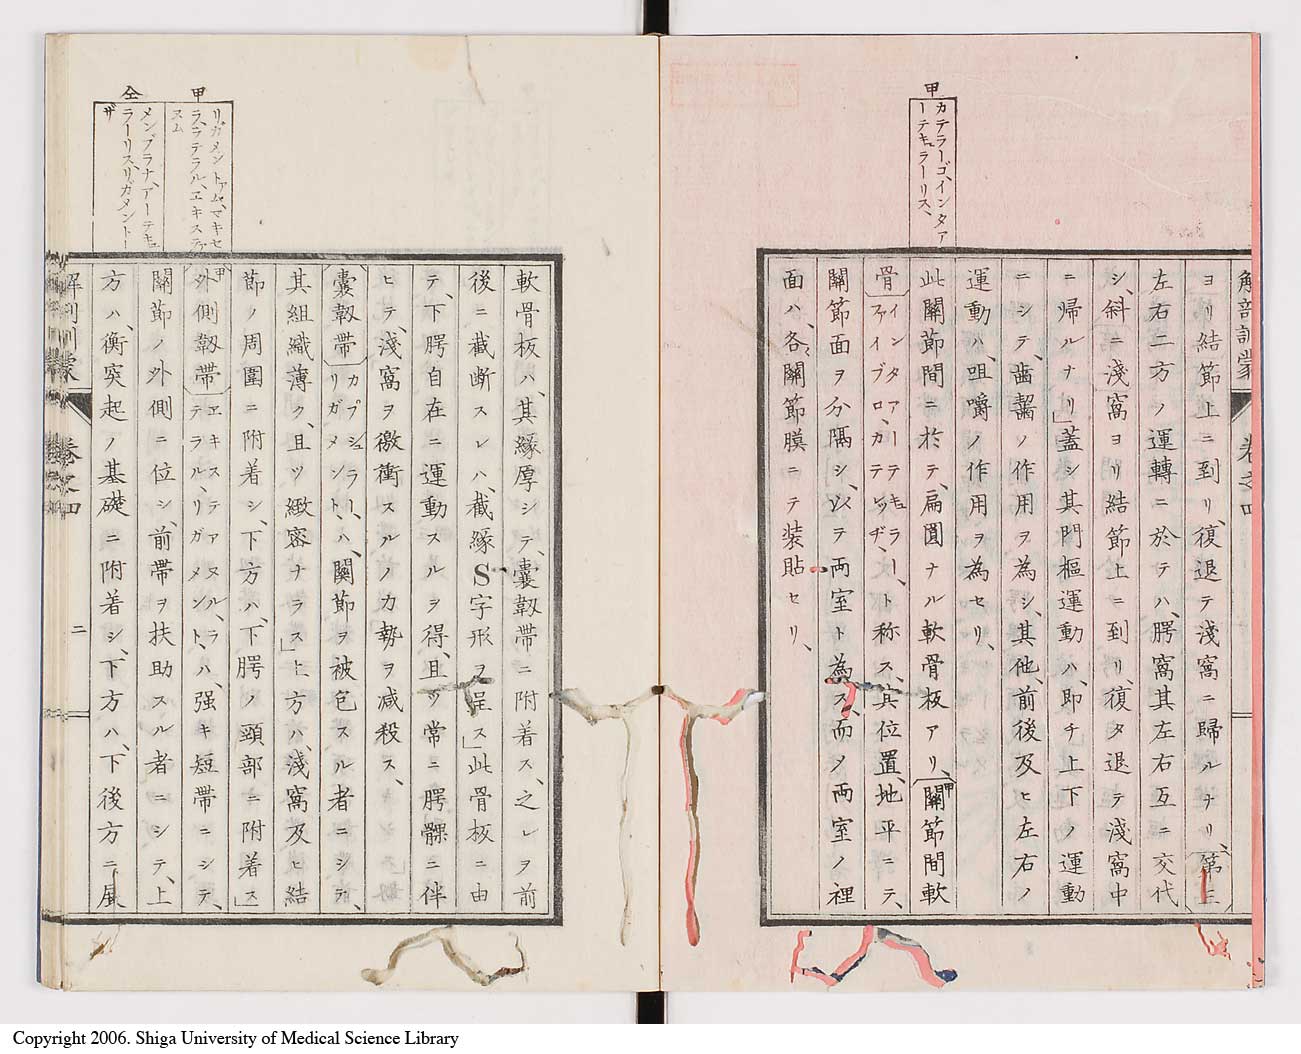 解剖訓蒙 巻之四
甲
カテラーゴ、インタァ
ーテキュラーリス、
ヨリ結節上ニ到リ、復退テ淺窩ニ歸ルナリ、第三
左右二方ノ運轉ニ於テハ、腭窩其左右互ニ交代
シ、斜ニ淺窩ヨリ結節上ニ到リ、復タ退テ淺窩中
ニ帰ルナリ」蓋シ其門樞運動ハ、即チ上下ノ運動
ニシテ、齒齧ノ作用ヲ為シ、其他、前後及ヒ左右ノ
運動ハ、咀嚼ノ作用ヲ為セリ、
此關節間ニ於テ、扁圓ナル軟骨板アリ、關節間軟
骨インタアーテキュラー、ファイブロ、カテレッヂ、ト称ス、其位置、地平ニテ、
關節面ヲ分隔シ、以テ両室ト為ス、而ノ両室ノ裡
面ハ、各關節膜ニテ装貼セリ、
甲
リガメントァム、マキセ
ラ、ラテラル、エキステァ
ヌム
仝
メンブラナ、アーテキュ
ラーリス、リガメントー
ザ
軟骨板ハ、其縁厚シテ、囊韌帯ニ附着ス、之レヲ前
後ニ截断スレハ、截縁S字形ヲ呈ス」此骨板ニ由
テ、下腭自在ニ運動スルヲ得、且ツ常ニ腭髁ニ伴
ヒテ、淺窩ヲ徼衝スルノカ勢ヲ减殺ス、
囊韌帯カプシュラー、リガメント、ハ、関節ヲ被包スル者ニシテ、
其組織薄ク、且ツ緻密ナラス」上方ハ、淺窩及ヒ結
節ノ周圍ニ附着シ、下方ハ、下腭ノ頸部ニ附着ス」
甲
外側韌帯エキステァヌル、ラテラル、リガメント、ハ、强キ短帯ニシテ、
關節ノ外側ニ位シ、前帯ヲ扶助スル者ニシテ、上
方ハ、衡突起ノ基礎ニ附着シ、下方ハ、下後方ニ展
解剖訓蒙 巻之四 二
Copyright 2006. Shiga University of Medical Science Library